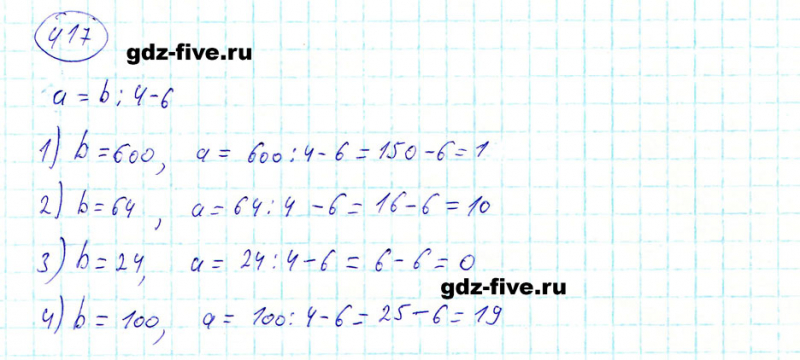 417
gdz-five.ru
a = b : 4 - 6
1) b = 600, a = 600 : 4 - 6 = 150 - 6 = 1
2) b = 64, a = 64 : 4 - 6 = 16 - 6 = 10
3) b = 24, a = 24 : 4 - 6 = 6 - 6 = 0
gdz-five.ru
4) b = 100, a = 100 : 4 - 6 = 25 - 6 = 19